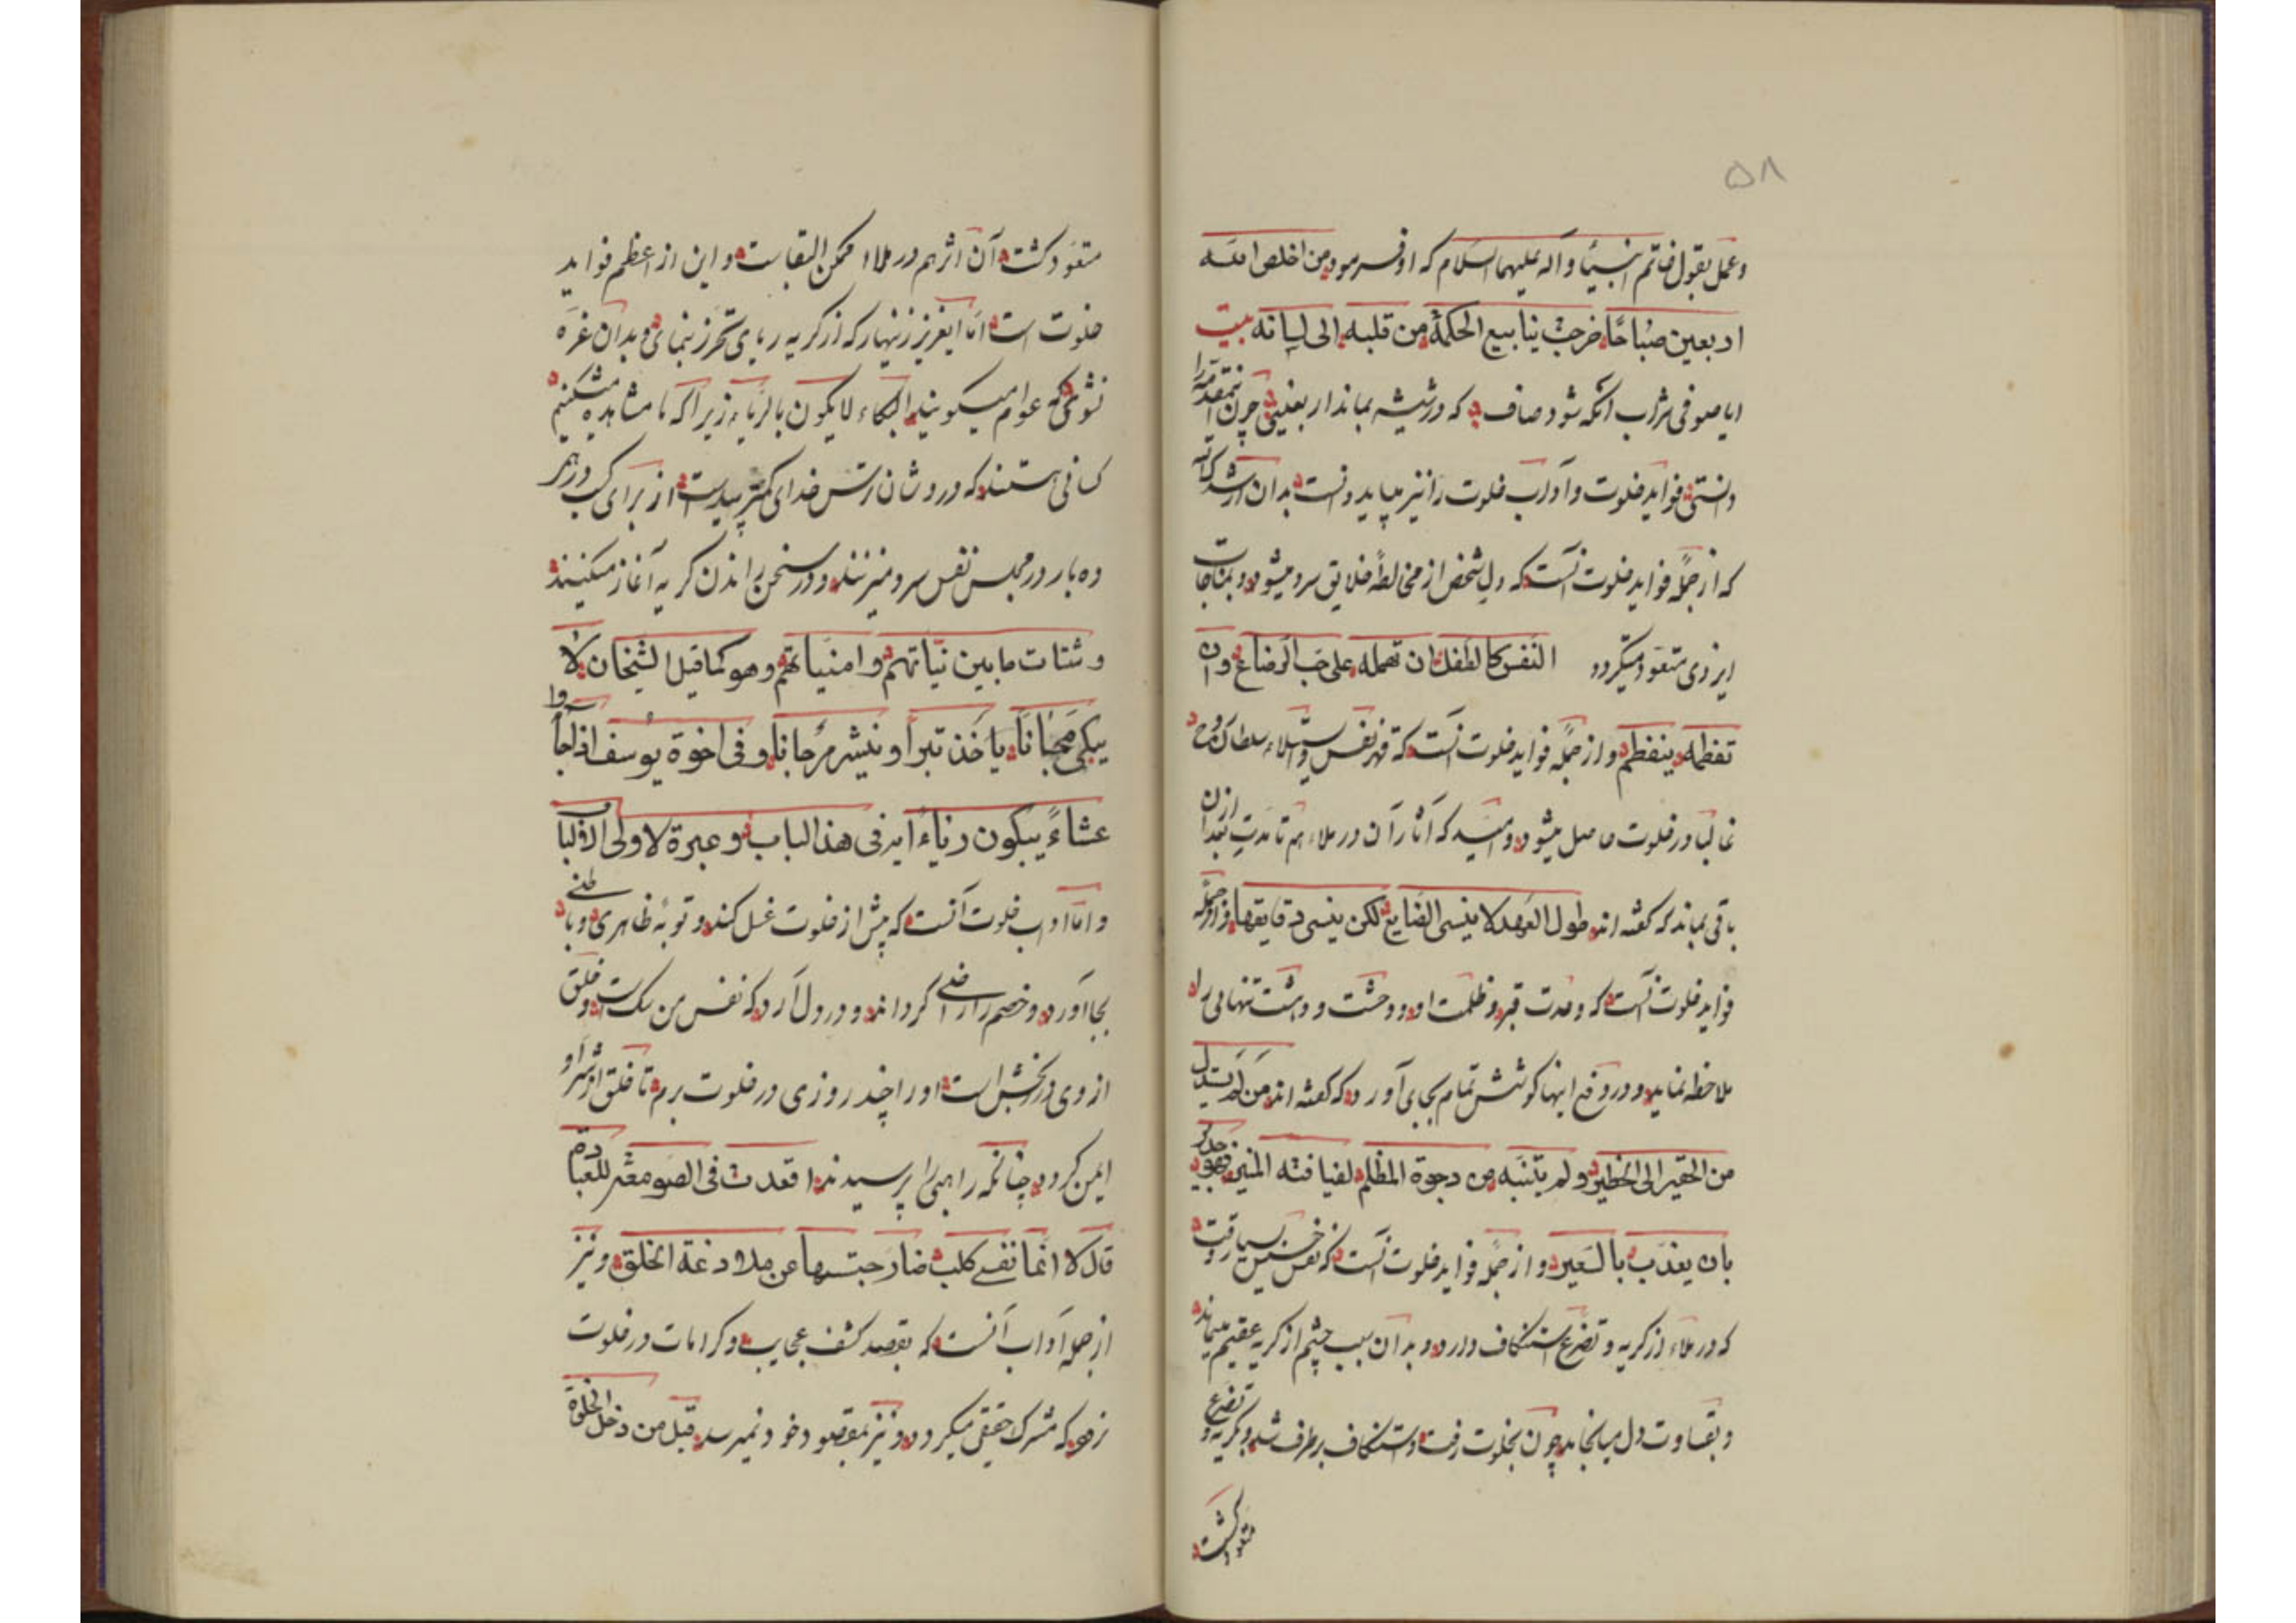 ۵۸
وعمل بقول خاتم انبیا و آله علیهما السلام که او فرمود من اخلص الله
اربعین صباحًا خرجت ینابیع الحکمة من قلبه الی لسانه بیت
ایا صوفی شراب آنکه شود صاف که در شیشه بماند اربعینی چون مقدمه را
دانستی فواید خلوت و آداب خلوت را نیز میباید دانست بدان ارشدک الله
که از جملهٔ فواید خلوت آنست که دل شخص از مخالطهٔ خلایق سرد میشود و بمناجات
ایزدی متعوّد میگردد النفس کالطفل ان تهمله علی حب الرضاع وان
تفطمه ینفطم و از جملهٔ فواید خلوت آنست که قهر نفس و استیلاء سلطان روح
غالبا در خلوت حاصل میشود و امید که آثار آن در ملاء هم تا مدت بعد از آن
باقی بماند که گفته اند طول العهد لا ینسی الصنایع لکن ینسی دقایقها و از جمله
فواید خلوت آنست که وحدت قبر و ظلمت او و وحشت و دهشت تنهایی را
ملاحظه نماید و در رفع اینها کوشش تمام بجای آورد که گفته اند من لم یستدل
من الحقیر الی الخطیر ولم یتنبه من دجوة المظلم لضیافته المنیر فهو جدیر
بان یعذب بالسعیر و از جملهٔ فواید خلوت آنست که نفس خسیس بسیار وقت
که در ملاء از گریه و تضرع استنکاف دارد و بدان سبب چشم از گریه عقیم میماند
و بقساوت دل میانجامد چون بخلوت رفت و استنکاف برطرف شد و بگریه و تضرع
متعود گشت
متعوّد گشت آن اثر هم در ملاء ممکن البقاست و این از اعظم فواید
خلوت است اما ایعزیز زنهار که از گریه ریای تحرز بنمای و بدان غره
نشوی که عوام میگویند البکاء لا یکون بالریاء زیرا که ما مشاهده میکنیم
کسانی هستند که در دشان ترس خدای کمتر پیداست از برای کسب درهم
ده بار در مجلس نفس سرد میزنند و در سخن راندن گریه آغاز میکنند
وشتات ما بین نیاتهم وامنیاتهم وهو کما قیل الشیخان لا
یبکی مجانا یاخذ تبرا وینشر مرجانا وفی اخوة یوسف اذ جاؤا
عشاءً یبکون ریاءً آیة فی هذا الباب وعبرة لاولی الالباب
و اما آداب خلوت آنست که پیش از خلوت غسل کند و توبهٔ ظاهری و باطنی
بجا آورد و خصم را راضی گرداند و در دل آرد که نفس من سگ است و خلق
از وی در رنجش است او را چند روزی در خلوت برم تا خلق از شر او
ایمن گردد چنانکه راهبی را پرسیدند اقعدت فی الصومعة للعبادة
قال لا انما نفسی کلب ضار حبستها عن ملادغة الخلق و نیز
از جملهٔ آداب آنست که بقصد کشف عجایب و کرامات در خلوت
نرود که مشرک حقیقی میگردد و نیز بمقصود خود نمیرسد قیل من دخل الخلوة